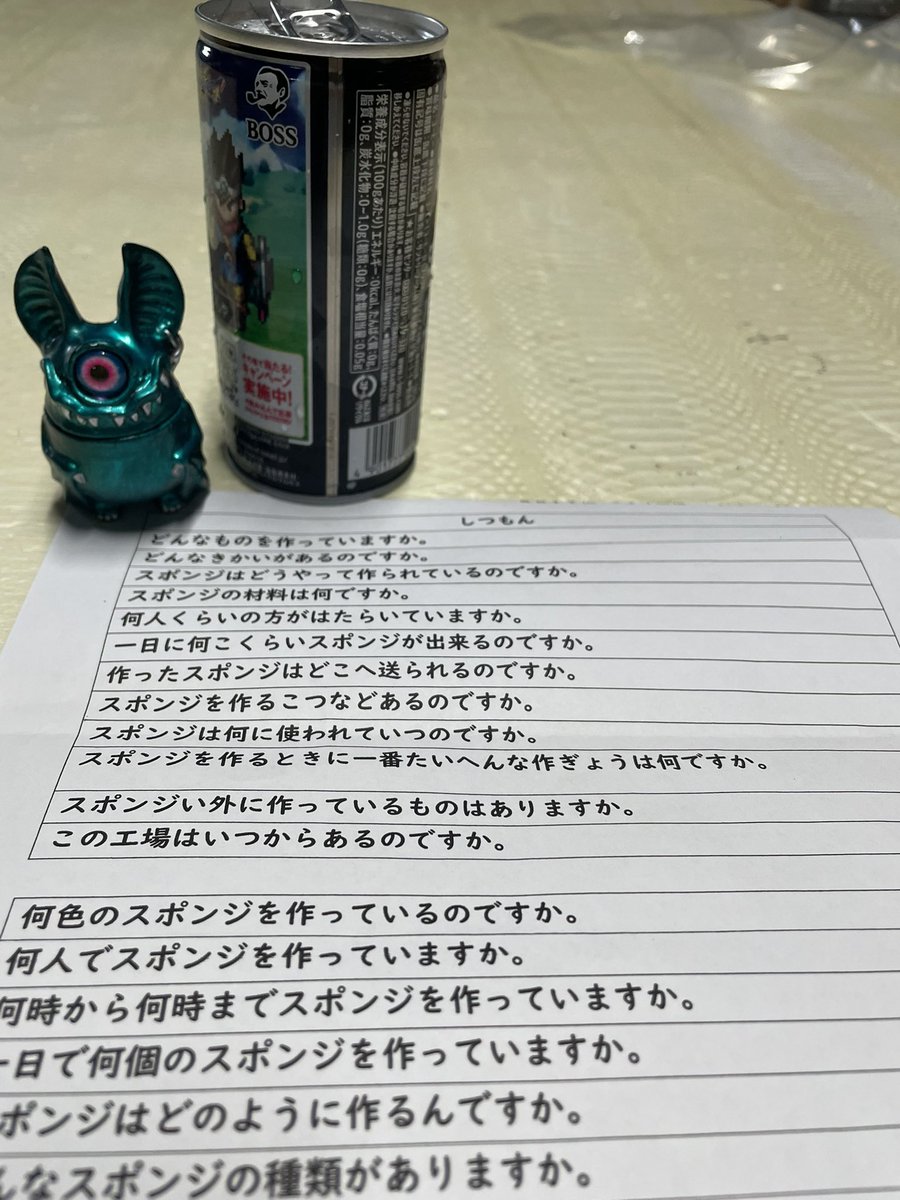 BOSS
栄養成分表示(100gあたり)エネルギー:0kcal、たんぱく質:0g、
脂質:0g、炭水化物:0~1.0g(糖類:0g)、食塩相当量:0.05g
キャンペーン
実施中!
しつもん
どんなものを作っていますか。
どんなきかいがあるのですか。
スポンジはどうやって作られているのですか。
スポンジの材料は何ですか。
何人くらいの方がはたらいていますか。
一日に何こくらいスポンジが出来るのですか。
作ったスポンジはどこへ送られるのですか。
スポンジを作るこつなどあるのですか。
スポンジは何に使われていつのですか。
スポンジを作るときに一番たいへんな作ぎょうは何ですか。
スポンジい外に作っているものはありますか。
この工場はいつからあるのですか。
何色のスポンジを作っているのですか。
何人でスポンジを作っていますか。
何時から何時までスポンジを作っていますか。
一日で何個のスポンジを作っていますか。
ポンジはどのように作るんですか。
んなスポンジの種類がありますか。